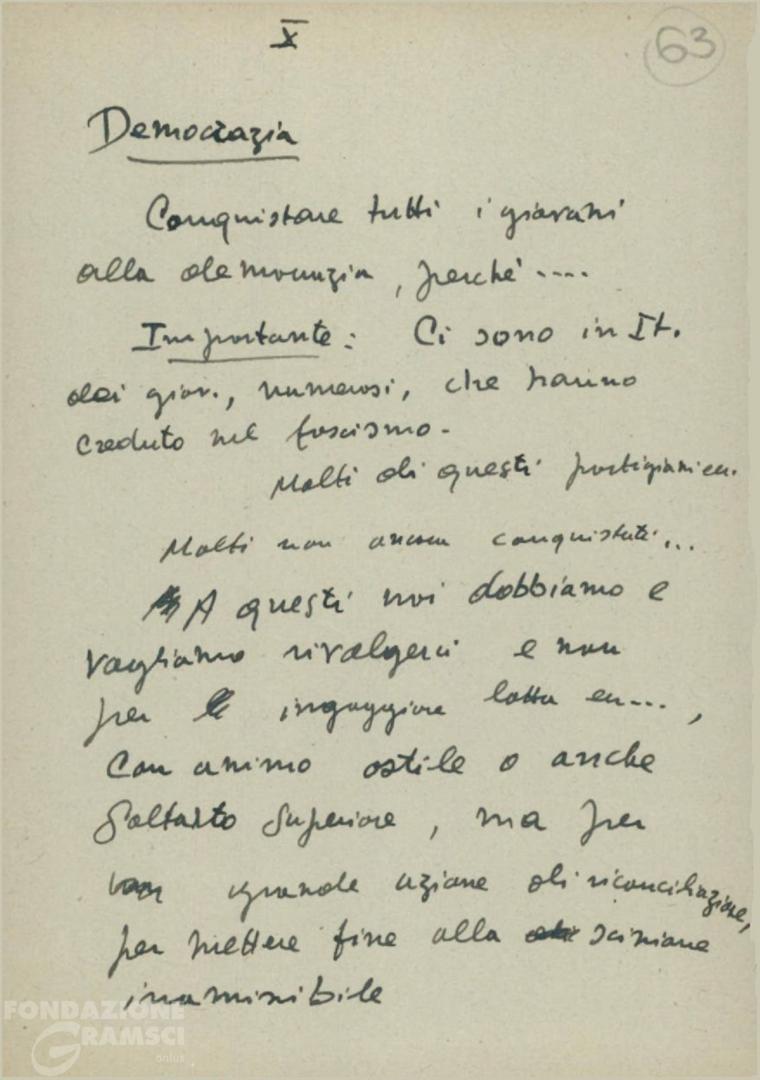 X
63
Democrazia
Conquistare tutti i giovani
alla democrazia, perché ....
Importante: Ci sono in It.
dei giov., numerosi, che hanno
creduto nel fascismo.
Molti di questi partigiani ecc.
Molti non ancora conquistati...
A questi noi dobbiamo e
vogliamo rivolgerci e non
per ingaggiare lotta ecc...,
con animo ostile o anche
soltanto superiore, ma per
grande azione di riconciliazione,
per mettere fine alla scissione
FONDAZIONE
GRAMSCI
onlus